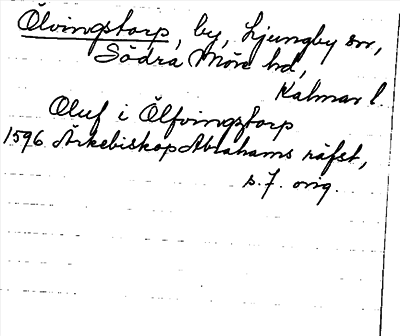 Ölvingstorp, by, Ljungby sn,
Södra Möre hd,
Kalmar l.
Oluf i Ölfvingztorp
1596 Ärkebiskop Abrahams räfst,
s. 7. orig.